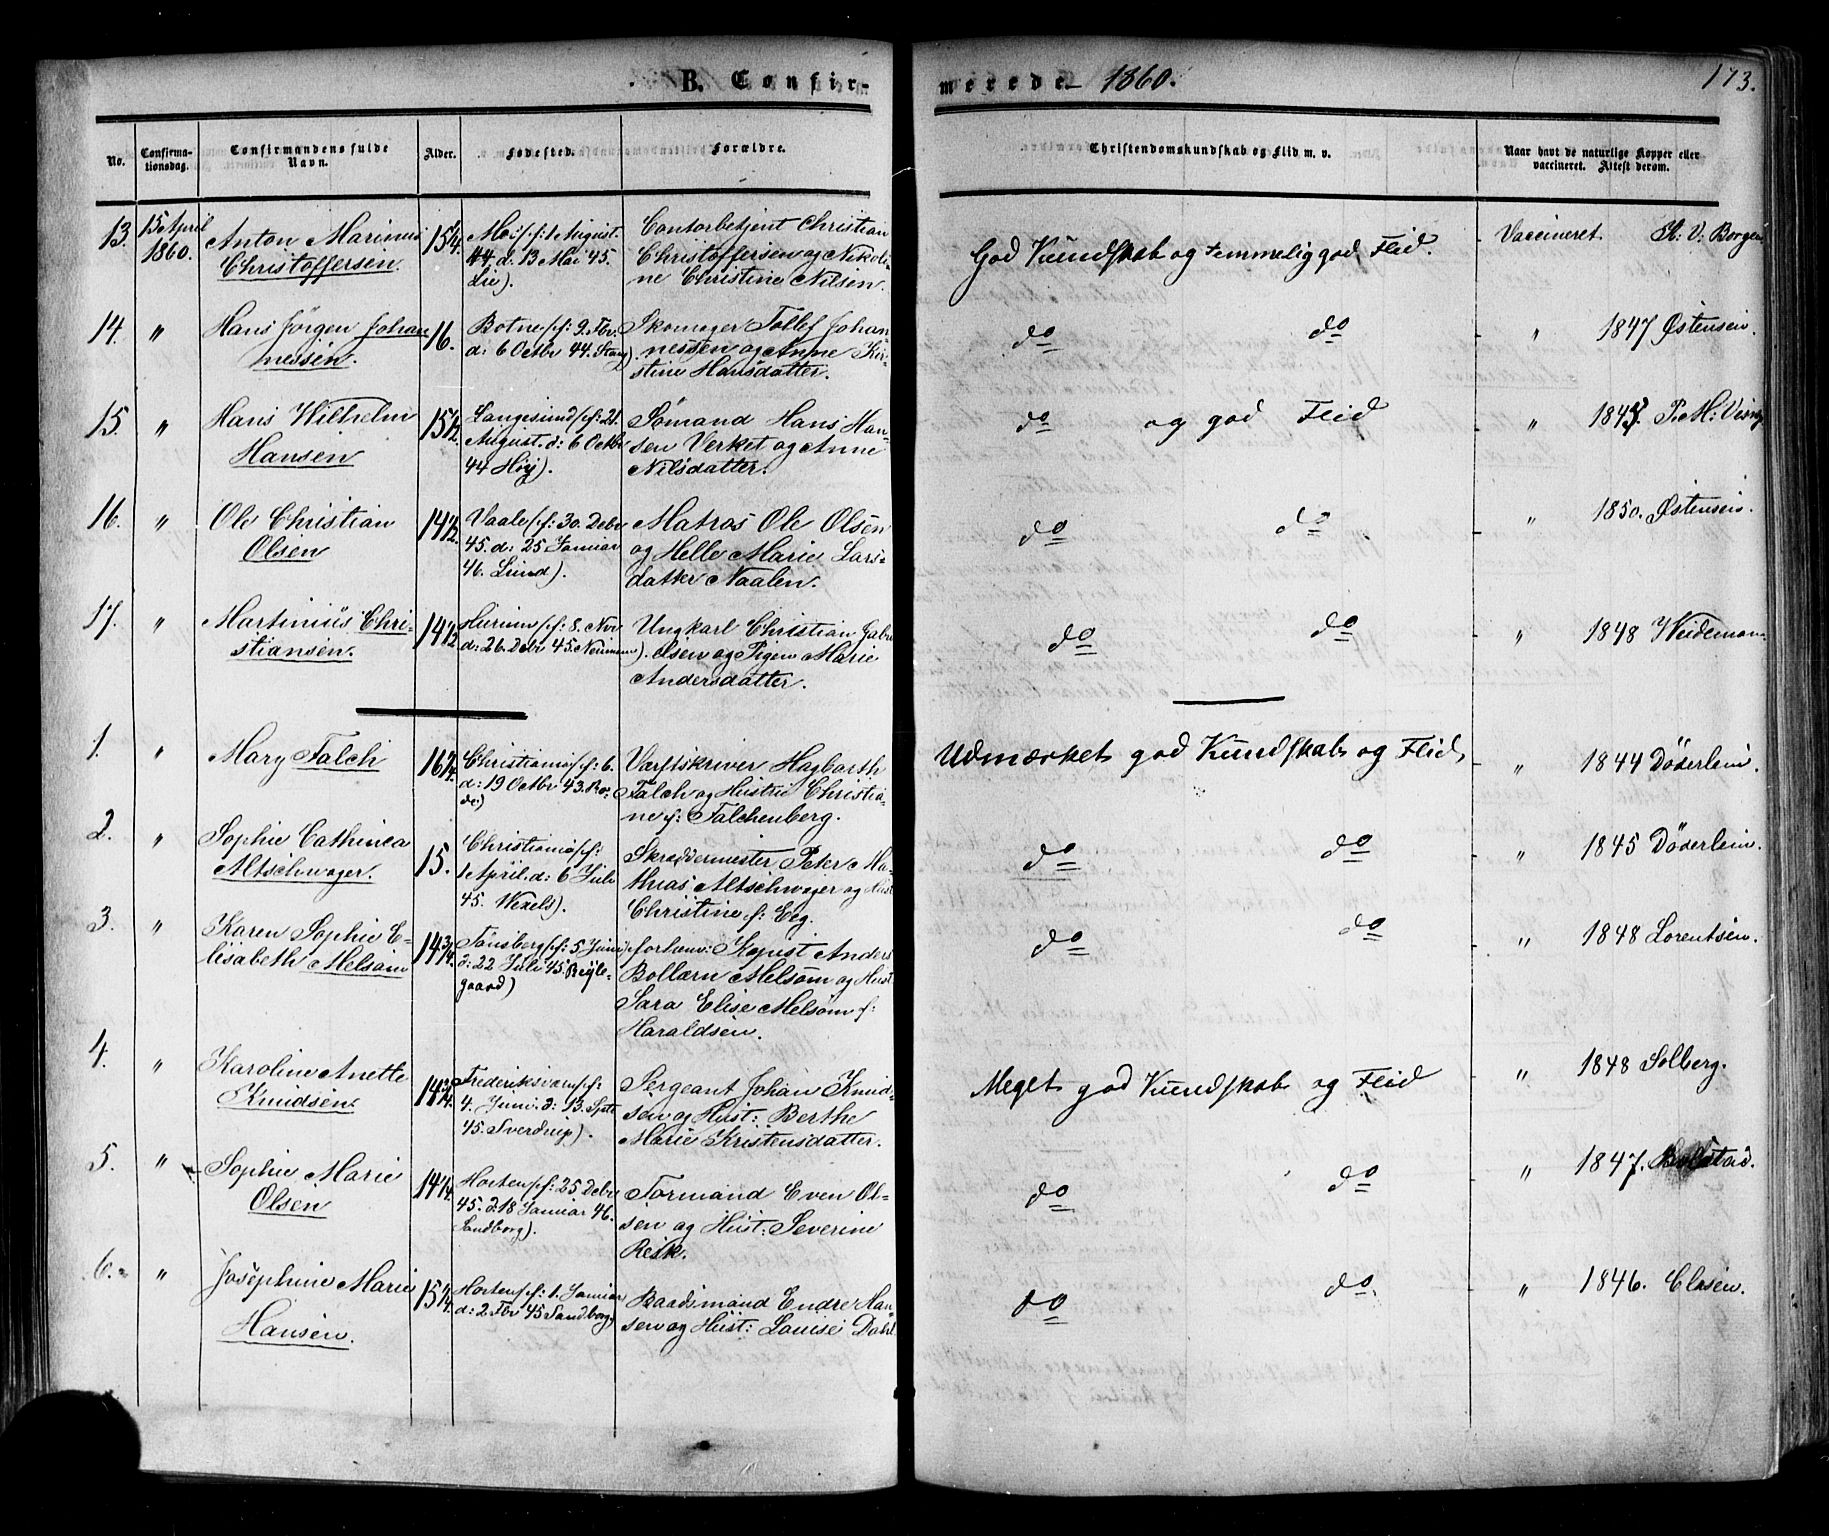 B. Confir-
merede 1860.
173.
No.
Confirma-
tionsdag.
Confirmandens fulde
Navn.
Alder.
Fødested.
Forældre.
Christendomskundskab og Flid m. v.
Naar havt de naturlige Kopper eller
vaccineret. Attest derom.
13.
15 April
1860.
Anton Marinus
Christoffersen.
15¼.
Moi f: 1 August.
44. d: 13 Mai 45.
Lie).
Contorbetjent Christian
Christoffersen og Nikoli-
ne Christine Nilsen.
God Kundskab og temmelig god Flid.
Vaccineret.
14.
"
Hans Jörgen Johan
nessen.
16.
Botne (f: 9. Fbr:
d: 6 Octbr 44.
Skomager Tollef Johan
nessen og Anne Kir-
stine Hansdatter.
do do
" 1847 Østensen.
15.
"
Hans Wilhelm
Hansen
15½.
Langesund (f: 21.
August. d: 6 Octbr
44 Høy).
Sømand Hans Han-
sen Verket og Anne
Nilsdatter.
do og god Flid
" P. M:
16.
"
Ole Christian
Olsen
14½.
Vaale (f: 30. Debr
45. d: 25 Januar
46. Lund).
Matros Ole Olsen
og Helle Marie Lars-
datter Naalen.
do do
" 1850. Østensen.
17.
"
Martinius Chri-
stiansen.
14½
Hurum (f: 8. Nov
d: 26. Debr 45. Neumann).
Ungkarl Christian Gabri
elsen og Pigen Marie
Andersdatter.
do do
" 1848 Weidemann.
1.
"
Mary Falch
Christiania (f: 6.
d: 19 Octbr 43.
Værftskriver Hagbarth
Falch og Hustru Christia-
ne f: Falchenberg.
Udmærket god Kundskab og Flid,
" 1844 Döderlein.
2.
"
Sophie Cathinca
Altschwager.
15.
Christiania (f:
1 April. d: 6 Juli
45. Wexels).
Skræddermester Peter Ma-
thias Altschwager og Hust
Christine f: Eeg.
do do
" 1845 Döderlein.
3.
"
Karen Sophie E-
lisabeth Melsom
14¾.
Tønsberg (f: 5 Juni
d: 22 Juli 45 Bugle-
gaard)
forhenv: Kopist Anders
Bollærn Melsom og Hust
Sara Elise Melsom f:
Haraldsen.
do do
" 1848 Lorentsen.
4.
"
Karoline Anette
Knudsen.
14¾
Frederiksværn (f:
4. Juni. d: 13. Sptr
45. Sverdrup).
Sergeant Johan Knud-
sen og Hust: Berthe
Marie Kristensdatter.
Meget god Kundskab og Flid
" 1848 Solberg.
5.
"
Sophie Marie
Olsen
14¼.
Horten (f: 25 Debr
45. d: 18 Januar 46.
Sandborg).
Tørmand Even Ol-
sen og Hust: Severine
Resk.
do do
" 1847.
6.
"
Josephine Marie
Hansen.
15¼.
Horten (f: 1. Januar
d: 2. Fbr 45 Sandborg)
Baadsmand Endre Han-
sen og Hust: Louise Dahl
do do.
" 1846. Clasen.